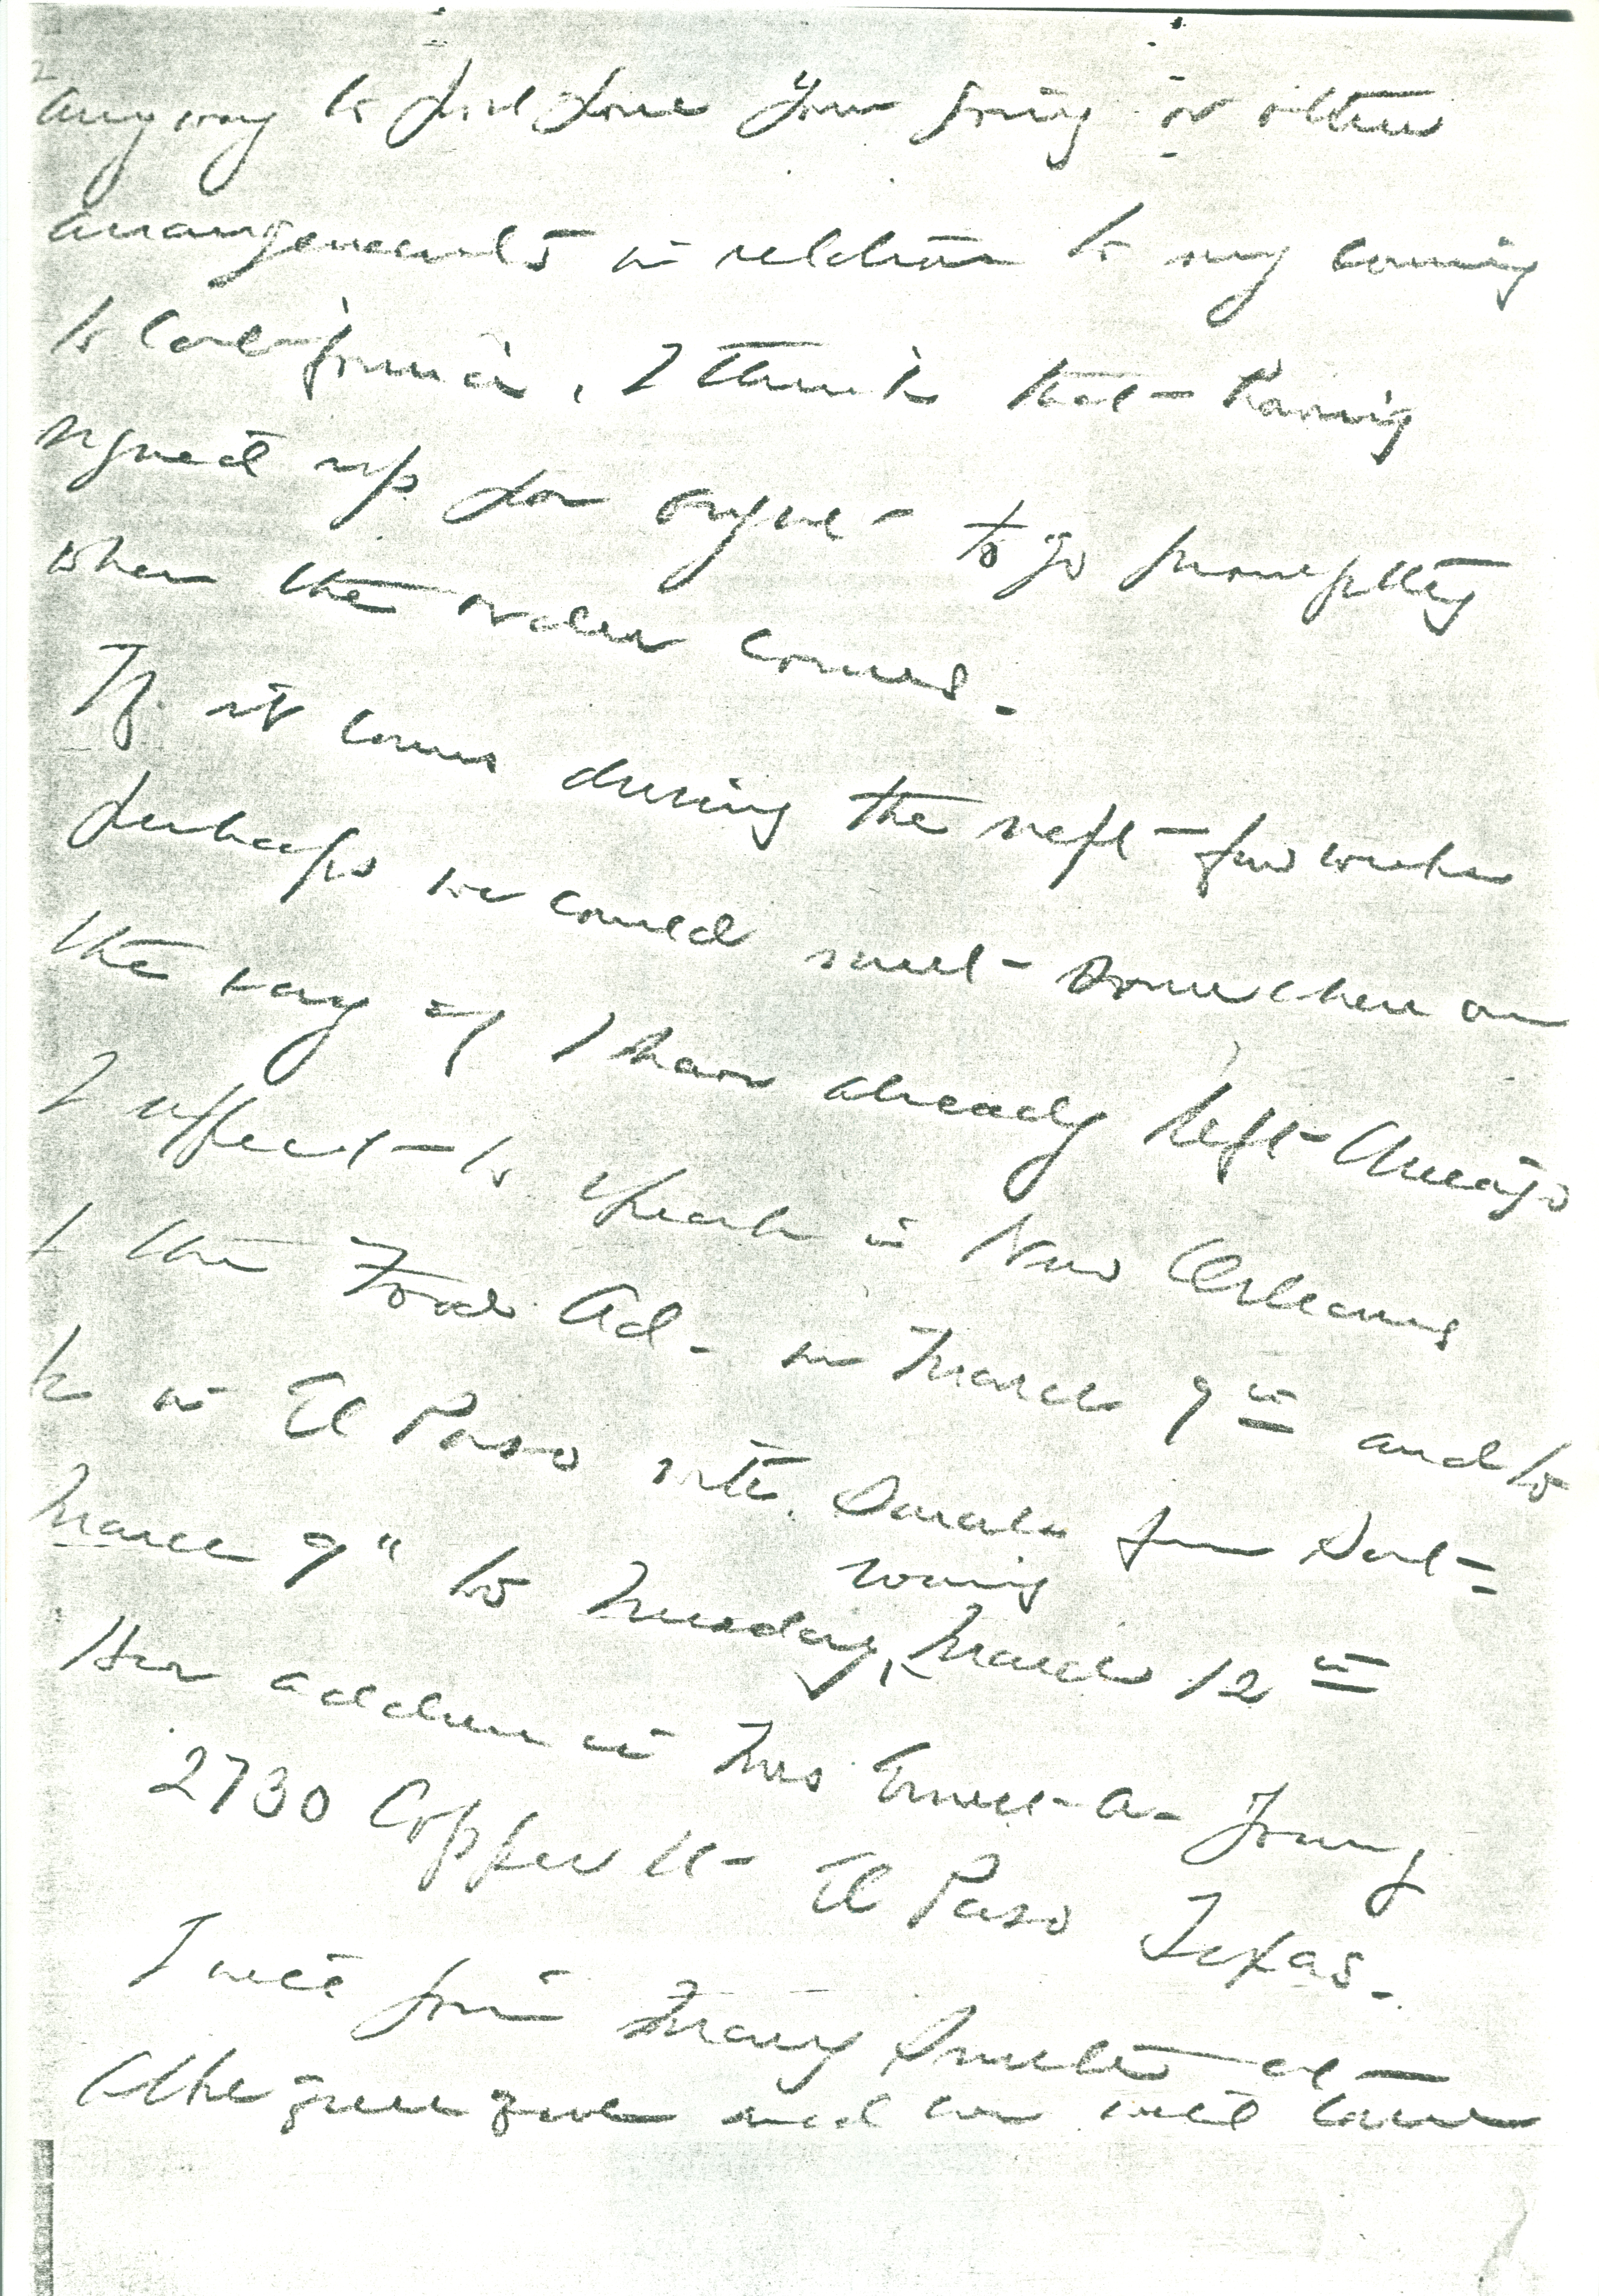 anyway to postpone your going or other
arrangements in relation to my coming
to California, I think that having
signed up for to go promptly
when the order comes.
If it comes during the next few weeks
perhaps we could meet somewhere on
the way if I have already left Chicago
I expect to speak in New Orleans
the Food Ad. on March 9th and to
be in El Paso with Sarah from Sat=
March 9" to Tuesday,
evening
March 12th
Her address is Mrs Ernest A. Young
2730 Copper St. El Paso Texas.
I will join Mary Smith at
Albuquerque and we will have